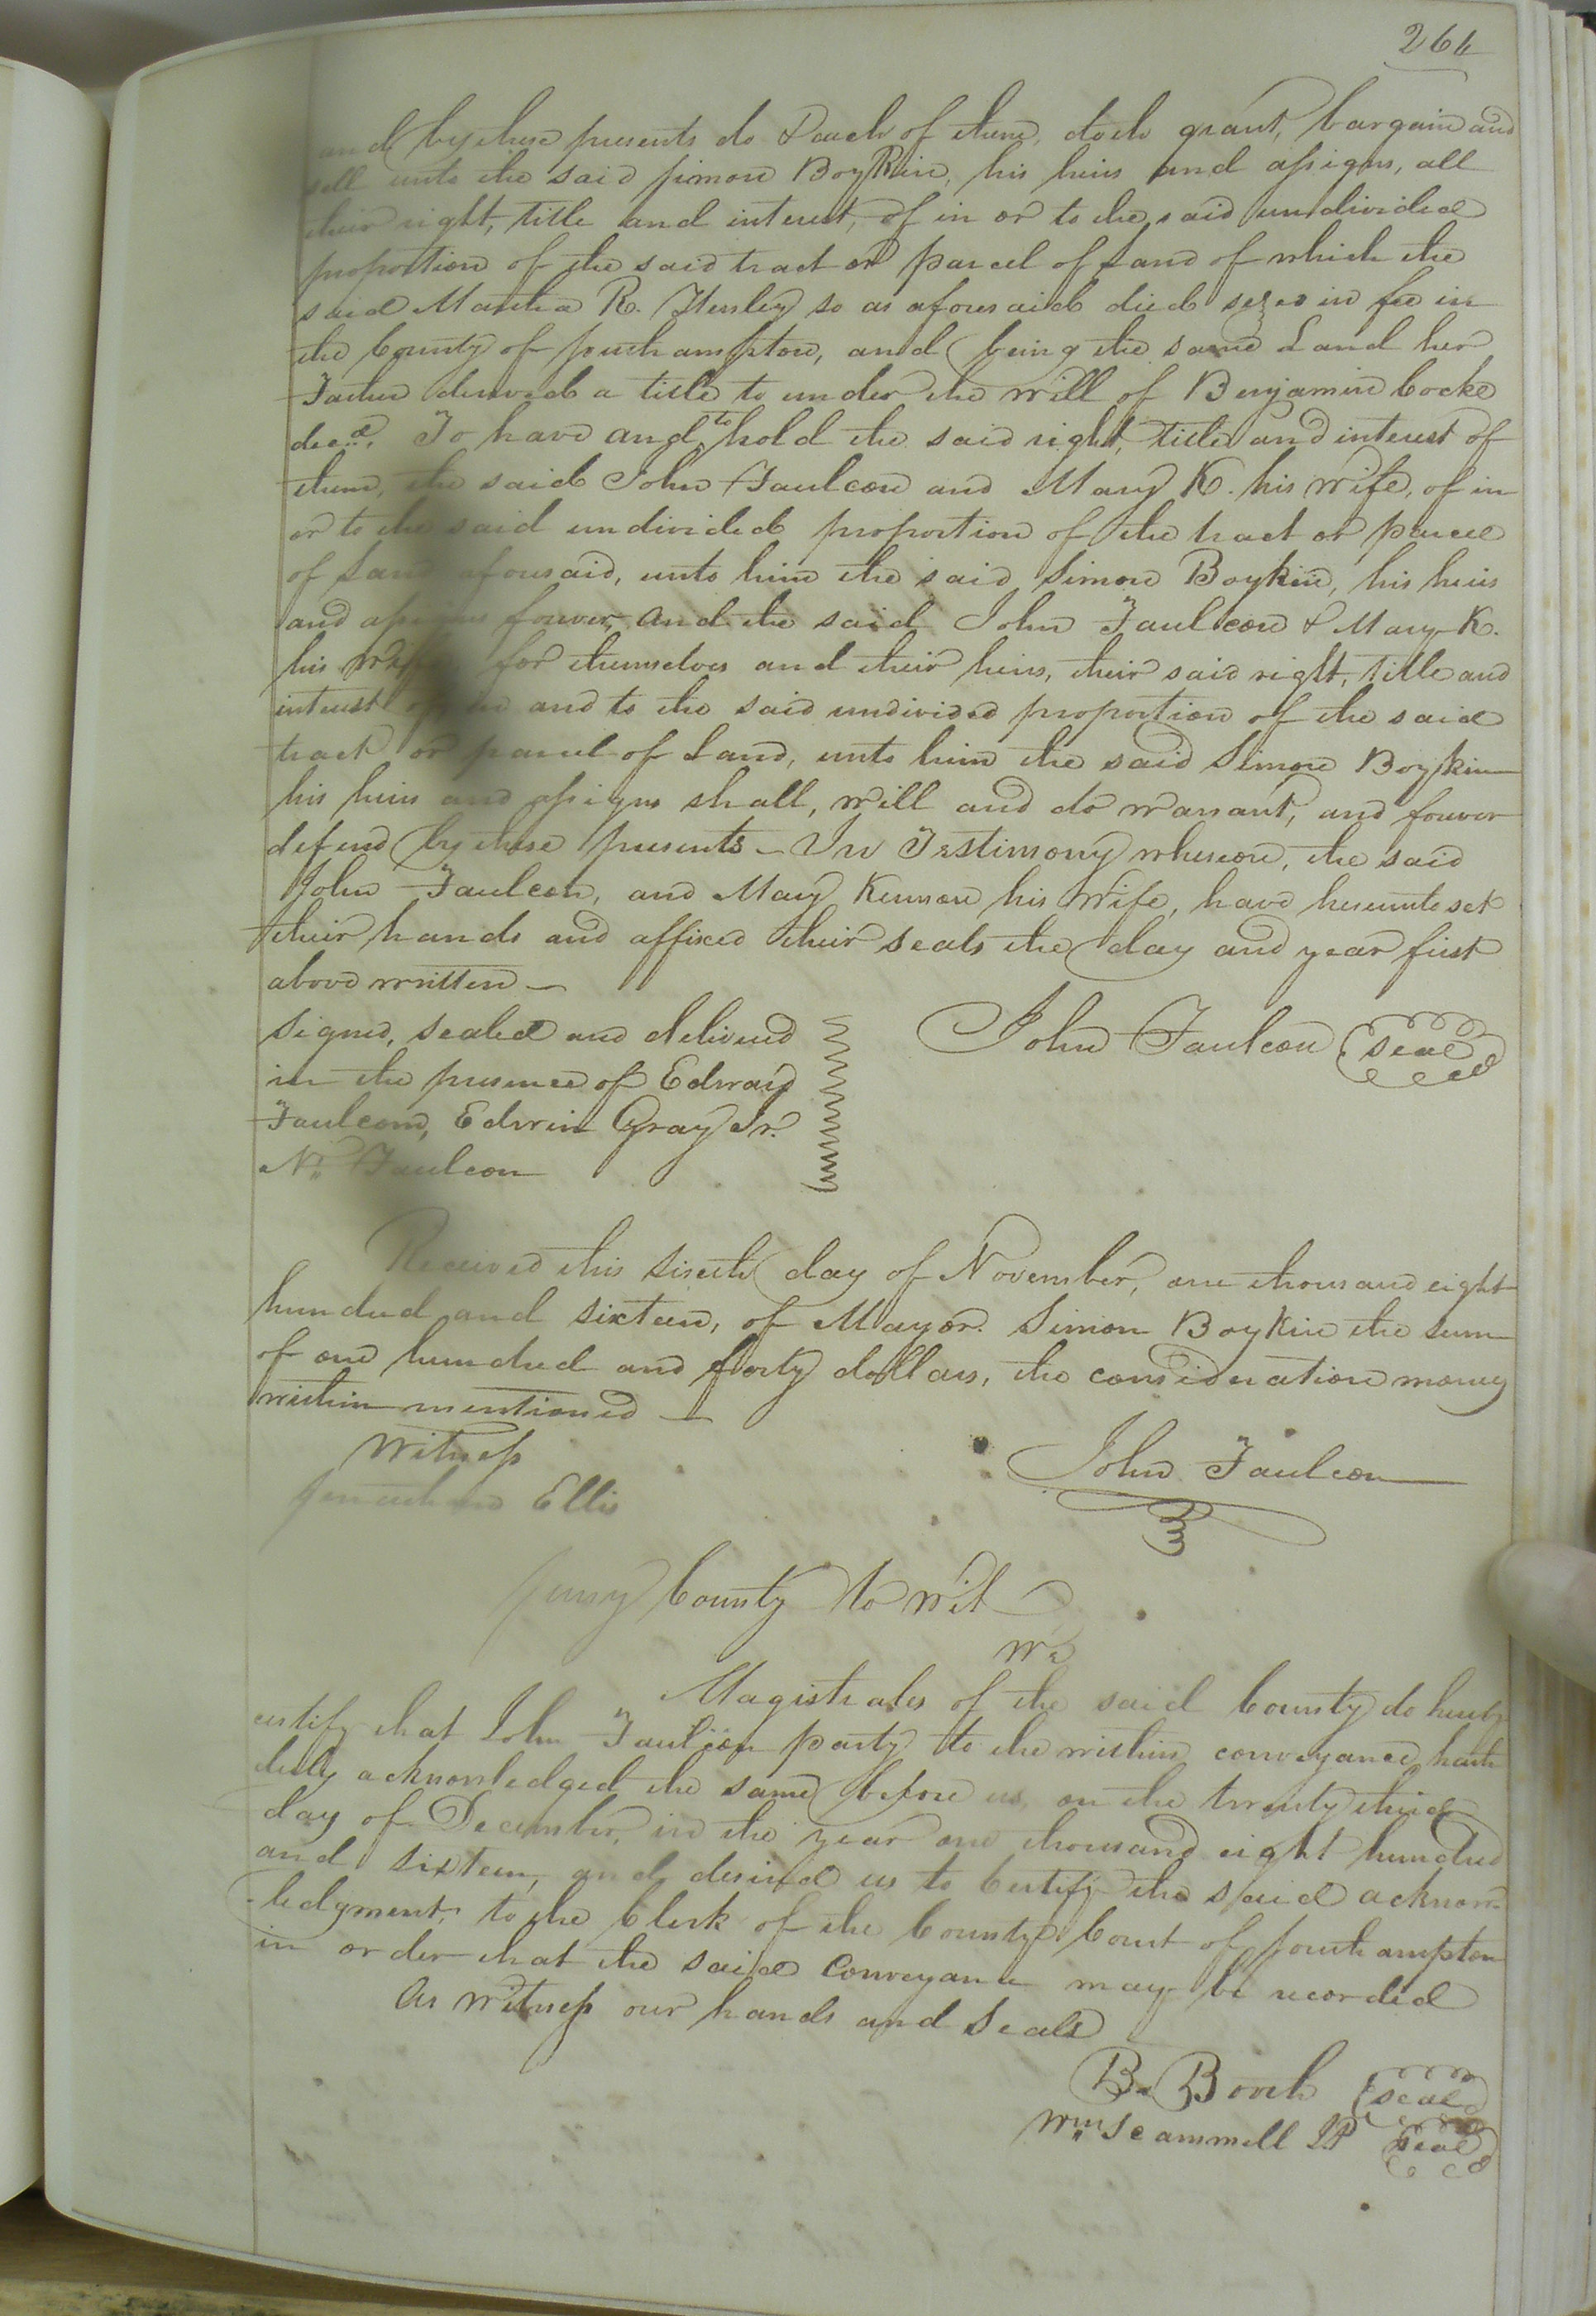 264
and by these presents do & each of them, doth grant, bargain and
sell unto the said Simon Boykin, his heirs and assigns, all
their right, title and interest, of in or to the said undivided
proportion of the said tract or parcel of Land of which the
said Martha R. Hensley so as aforesaid died sezed in fee in
the County of Southampton, and being the same Land her
Father derived a title to under the will of Benjamin Cocke
decd. To have and to hold the said right, title and interest of
them, the said John Faulcon and Mary K. his wife, of in
or to the said undivided proportion of the tract or parcel
of Land aforesaid, unto him the said Simon Boykin, his heirs
and assigns forever, And the said John Faulcon & Mary K.
his wife, for themselves and their heirs, their said right, title and
interest of in and to the said undivided proportion of the said
tract or parcel of Land, unto him the said Simon Boykin
his heirs and assigns shall, will and do warrant, and forever
defend by these presents – In Testimony whereon, the said
John Faulcon, and Mary Kennon his Wife, have hereunto set
their hands and affixed their seals the day and year first
above written –
Signed, sealed and delivered
in the presence of Edward
Faulcon, Edwin Gray Jr.
Ns. Faulcon
John Faulcon Seal
Received this sixth day of November, one thousand eight
hundred and sixteen, of Mayor. Simon Boykin the sum
of one hundred and forty dollars, the consideration money
within mentioned –
Witness
Jonathan Ellis
John Faulcon
Surry County to wit
We
Magistrates of the said County do hereby
certify that John Faulcon party to the within conveyance hath
duly acknowledged the same before us, on the twenty third
day of December, in the year one thousand eight hundred
and sixteen, and desired us to Certify the said acknow
-ledgment, to the Clerk of the County Court of Southampton
in order that the said Conveyance may be recorded
As Witness our hands and Seals
B. Booth Seal
Wm. Scammell JP Seal